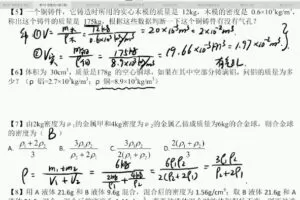 【5】一个铜铸件,它铸造时所用的实心木模的质量是 12kg,木模的密度是 0.6×10³kg/m³.
称出这个铸件的质量是 175kg,根据这些数据判断一下这个铜铸件有没有气孔?
① V木 = m木/ρ木 = 12kg/0.6×10³kg/m³ = 20×10⁻³m³ = 2×10⁻²m³
② V实 = 175kg/8.9×10³kg/m³ = 19.66×10⁻³m³ = 1.97×10⁻²m³
【6】体积为 30cm³,质量是178g 的空心铜球,如果在其中空部分铸满铝,问铝的质量为多少?(ρ 铝=2.7×10³kg/m³;ρ 铜=8.9×10³kg/m³)
【7】由2kg密度为ρ₁的金属甲和4kg密度为ρ₂的金属乙铸成质量为6kg的合金球,则合金球的密度( B )
A. ρ₁+2ρ₂/3 B. 3ρ₁ρ₂/ρ₂+2ρ₁ C. 3ρ₁ρ₂/2(ρ₁+ρ₂) D. 2(ρ₁+ρ₂)/3
ρ = m₁+m₂/V₁+V₂ = 6kg/2kg/ρ₁+4kg/ρ₂ = 6ρ₁ρ₂/2(ρ₂+2ρ₁) = 3ρ₁ρ₂/ρ₂+2ρ₁
【8】用 A 液体 21.6g 和 B 液体 9.6g 混合,混合后的密度为 1.56g/cm³;